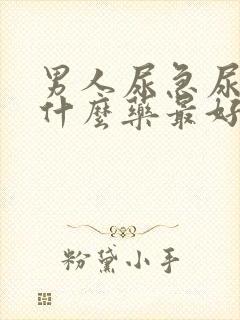 男人尿急尿
什麼藥最好
粉黛小手